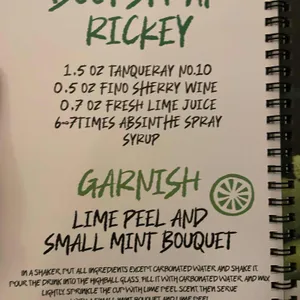 RICKEY
1.5 OZ TANQUERAY NO.10
0.5 OZ FINO SHERRY WINE
0.7 OZ FRESH LIME JUICE
6-7TIMES ABSINTHE SPRAY
SYRUP
GARNISH
LIME PEEL AND
SMALL MINT BOUQUET
IN A SHAKER, PUT ALL INGREDIENTS EXCEPT CARBONATED WATER, AND SHAKE IT.
POUR THE DRINK INTO THE HIGHBALL GLASS, FILL IT WITH CARBONATED WATER, AND MIX
LIGHTLY. SPRINKLE THE CUP WITH LIME PEEL SCENT, THEN SERVE
SMALL MINT BOUQUET AND LIME PEEL